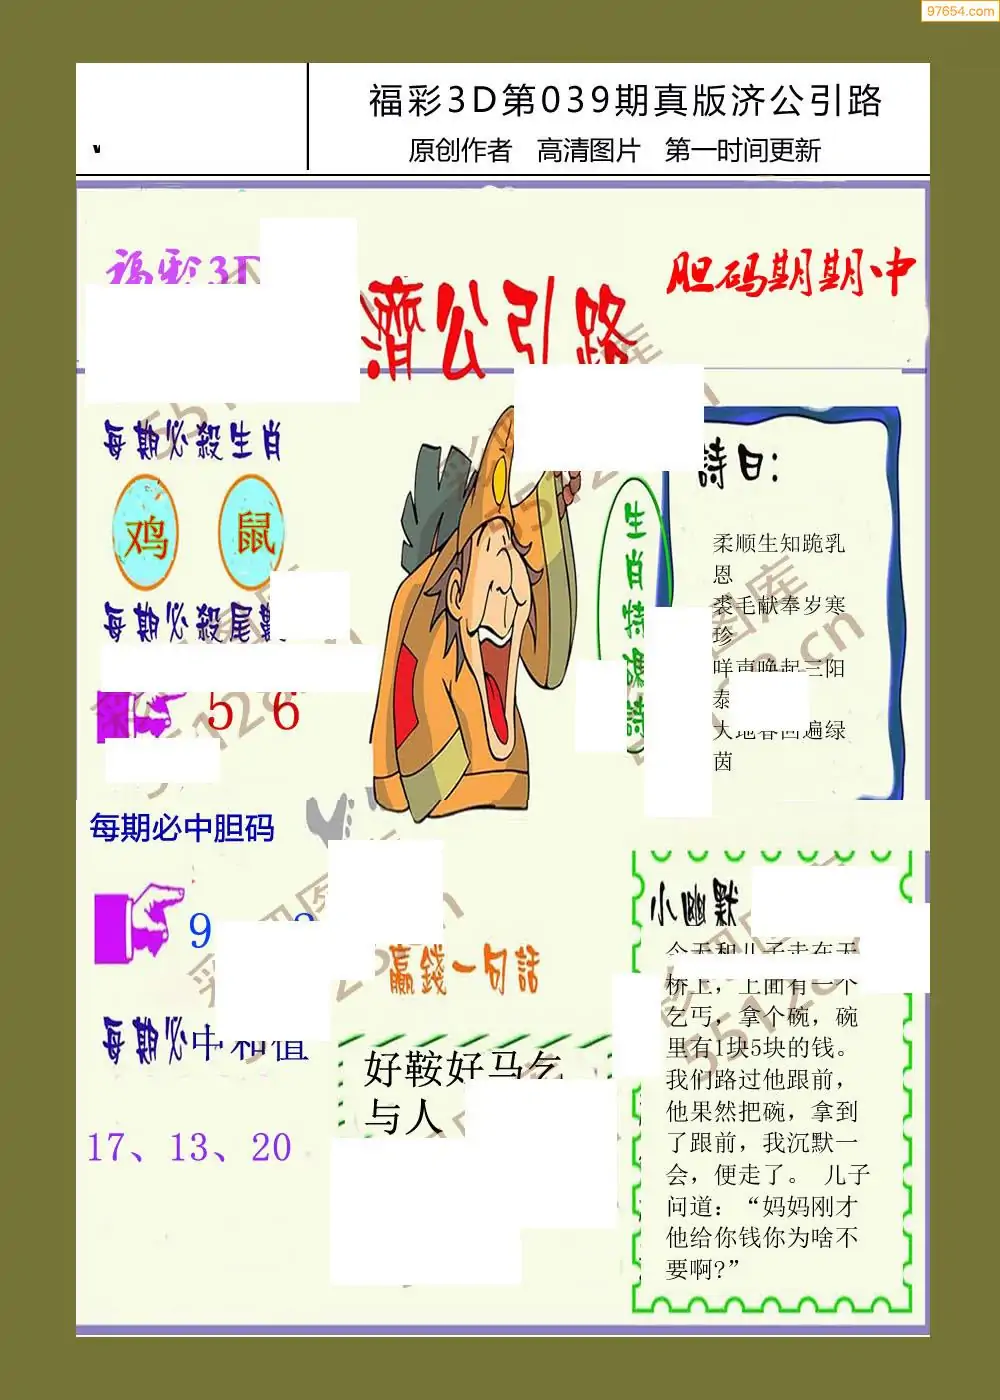 97654.com
福彩3D第039期真版济公引路
原创作者 高清图片 第一时间更新
福彩3D
胆码期期中
濟公引路
每期必殺生肖
鸡 鼠
每期必殺尾
5 6
每期必中胆码
9
每期必中和值
17、13、20
生肖特
詩
詩曰：
柔顺生知跪乳
恩
裘毛献奉岁寒
珍
咩声唤起三阳
泰
大地春回遍绿
茵
赢錢一句話
好鞍好马乞
与人
小幽默
今天和儿子走在天
桥上，上面有一个
乞丐，拿个碗，碗
里有1块5块的钱。
我们路过他跟前，
他果然把碗，拿到
了跟前，我沉默一
会，便走了。 儿子
问道：“妈妈刚才
他给你钱你为啥不
要啊?”